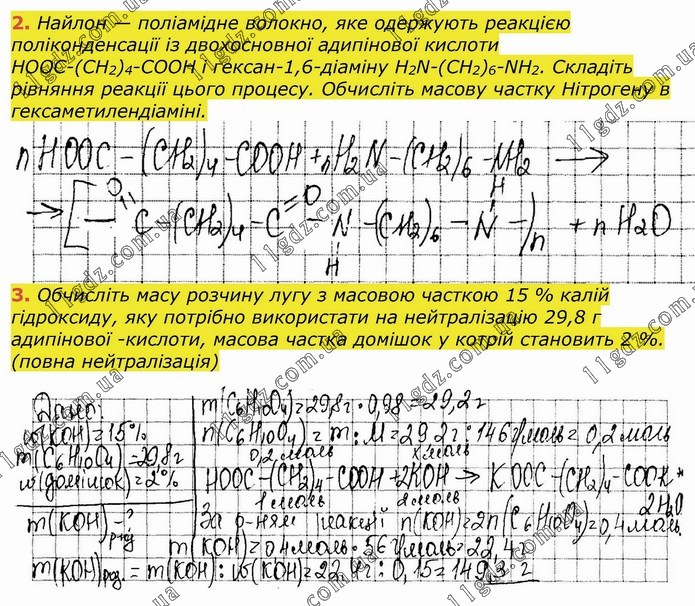 2. Найлон — поліамідне волокно, яке одержують реакцією
поліконденсації із двохосновної адипінової кислоти
HOOC-(CH₂)₄-COOH і гексан-1,6-діаміну H₂N-(CH₂)₆-NH₂. Складіть
рівняння реакції цього процесу. Обчисліть масову частку Нітрогену в
гексаметилендіаміні.
n HOOC – (CH₂)₄ – COOH + n H₂N – (CH₂)₆ – NH₂ →
→ [– C(=O) – (CH₂)₄ – C(=O) – N(H) – (CH₂)₆ – N(H) –]n + n H₂O
3. Обчисліть масу розчину лугу з масовою часткою 15 % калій
гідроксиду, яку потрібно використати на нейтралізацію 29,8 г
адипінової -кислоти, масова частка домішок у котрій становить 2 %.
(повна нейтралізація)
Дано:
w(KOH)=15%
m(C₆H₁₀O₄)=29,8г
w(домішок)=2%
m(KOH)р-ну -?
m(C₆H₁₀O₄)=29,8г · 0,98=29,2г
n(C₆H₁₀O₄) = m : M = 29,2г : 146г/моль = 0,2моль
0,2моль x моль
HOOC – (CH₂)₄ – COOH + 2KOH → KOOC – (CH₂)₄ – COOK +
1моль 2моль 2H₂O
За р-ням реакції n(KOH)=2n(C₆H₁₀O₄)=0,4моль
m(KOH)=0,4моль · 56г/моль=22,4г
m(KOH)роз. = m(KOH) : w(KOH)=22,4г : 0,15=149,3 г
11gdz.com.ua